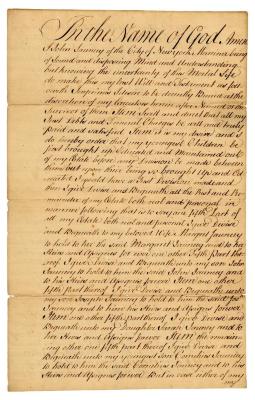 In the Name of God, Amen
I John Jauncey of the City of New York Mariner being
of sound and disposing Mind and Understanding
but knowing the uncertainty of this Mortal Life
do make this my last Will and Testament as fol-
above here of my Executors herein after Named or the
Survivor of them Item I will and order that all my
Just Debts and Funeral Charges be well and truly
paid and satisfied Item it is my desire and I
do hereby order that my youngest Children be
first brought up Educated and Maintained out
of my Estate before any Division be made between
them but upon their being so brought up and Ed-
ucated I would have a Just Division made and
then I give Devise and Bequeath all the Rest and Re-
mainder of my Estate both real and personal in
manner following that is to say one fifth Part of
all my Estate both real and personal I give Devise
and Bequeath to my beloved Wife Margaret Jauncey
to hold to her the said Margaret Jauncey and to her
Heirs and Assigns for ever one other Fifth part there-
of I give Devise and Bequeath unto my son John
Jauncey to hold to him the said John Jauncey and
to his Heirs and Assigns forever Item one other
fifth part thereof I give Devise and Bequeath unto
my Son Joseph Jauncey to hold to him the said Jos
Jauncey and to his Heirs and Assigns forever
Item one other fifth part thereof I give Devise and
Bequeath unto my Daughter Sarah Jauncey and to
her Heirs and Assigns forever Item the remain-
ing other one fifth part thereof I give Devise and
Bequeath unto my youngest Son Cornelius Jauncey
to hold to him the said Cornelius Jauncey and to his
Heirs and Assigns forever But in case either of my